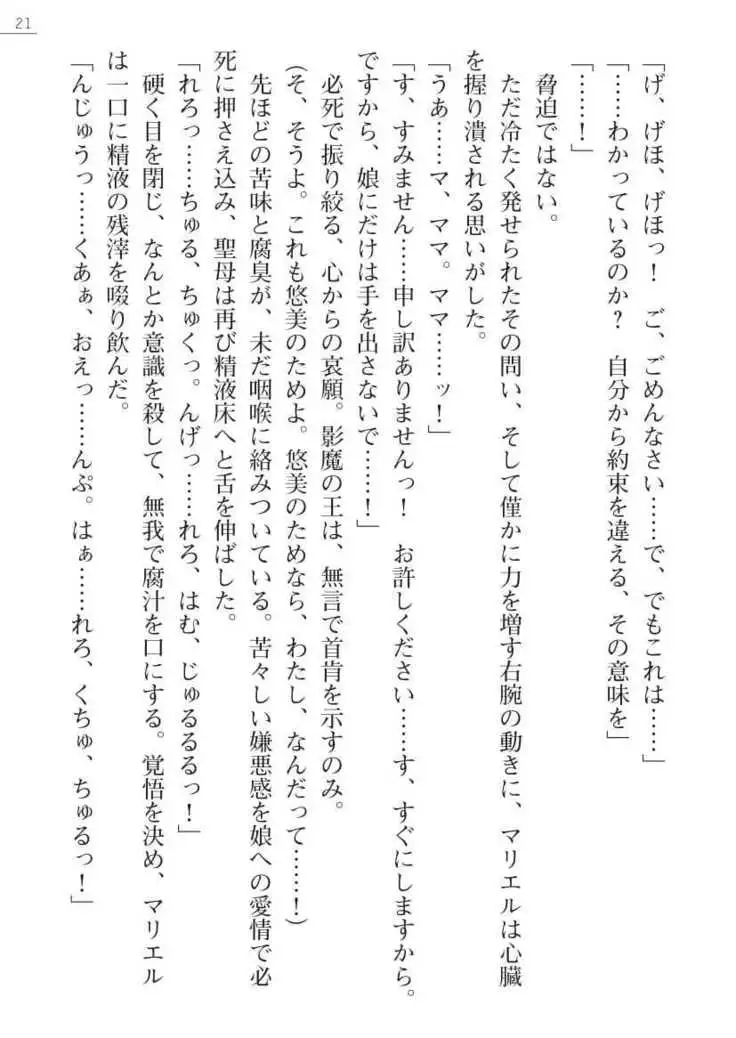 21
「げ、げほ、げほっ！　ご、ごめんなさい……で、でもこれは……」
「……わかっているのか？　自分から約束を違える、その意味を」
「……！」
脅迫ではない。
ただ冷たく発せられたその問い、そして僅かに力を増す右腕の動きに、マリエルは心臓
を握り潰される思いがした。
「うぁ……マ、ママ。ママ……ッ！」
「す、すみません……申し訳ありませんっ！　お許しください……す、すぐにしますから。
ですから、娘にだけは手を出さないで……！」
必死で振り絞る、心からの哀願。影魔の王は、無言で首肯を示すのみ。
（そ、そうよ。これも悠美のためよ。悠美のためなら、わたし、なんだって……！）
先ほどの苦味と腐臭が、未だ咽喉に絡みついている。苦々しい嫌悪感を娘への愛情で必
死に押さえ込み、聖母は再び精液床へと舌を伸ばした。
「れろっ……ちゅる、ちゅくっ。んげっ……れろ、はむ、じゅるるるっ！」
硬く目を閉じ、なんとか意識を殺して、無我で腐汁を口にする。覚悟を決め、マリエル
は一口に精液の残滓を啜り飲んだ。
「んじゅうっ……くあぁ、おえっ……んぷ。はぁ……れろ、くちゅ、ちゅるっ！」